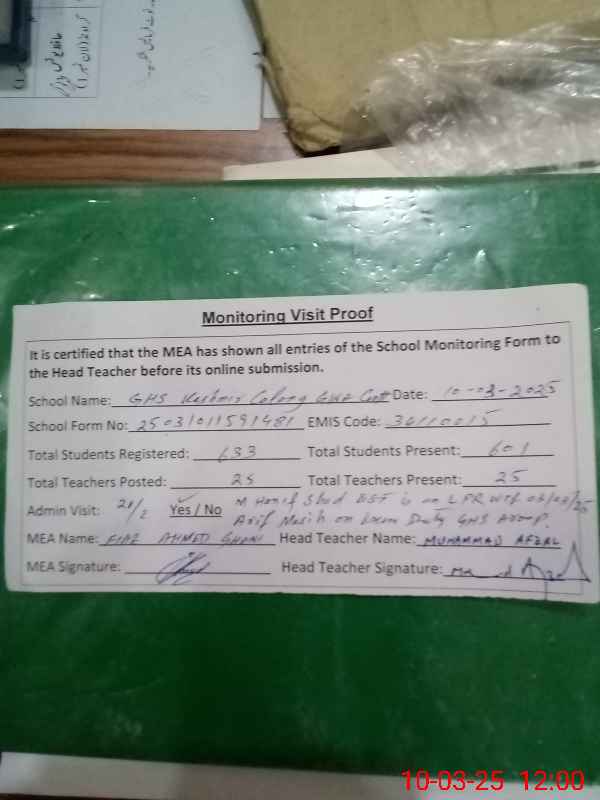 Monitoring Visit Proof
It is certified that the MEA has shown all entries of the School Monitoring Form to
the Head Teacher before its online submission.
School Name: GHS Kashmir Colony GWA Cantt Date: 10-03-2025
School Form No: 25031011591481 EMIS Code: 34110015
Total Students Registered: 633 Total Students Present: 601
Total Teachers Posted: 25 Total Teachers Present: 25
Admin Visit: 21/2 Yes / No M Hanif EST is on LPR wef
Arif Masih on Exam Duty GHS Aroop.
MEA Name: AHMED GHANI Head Teacher Name: MUHAMMAD AFZAL
MEA Signature: Head Teacher Signature:
10-03-25 12:00